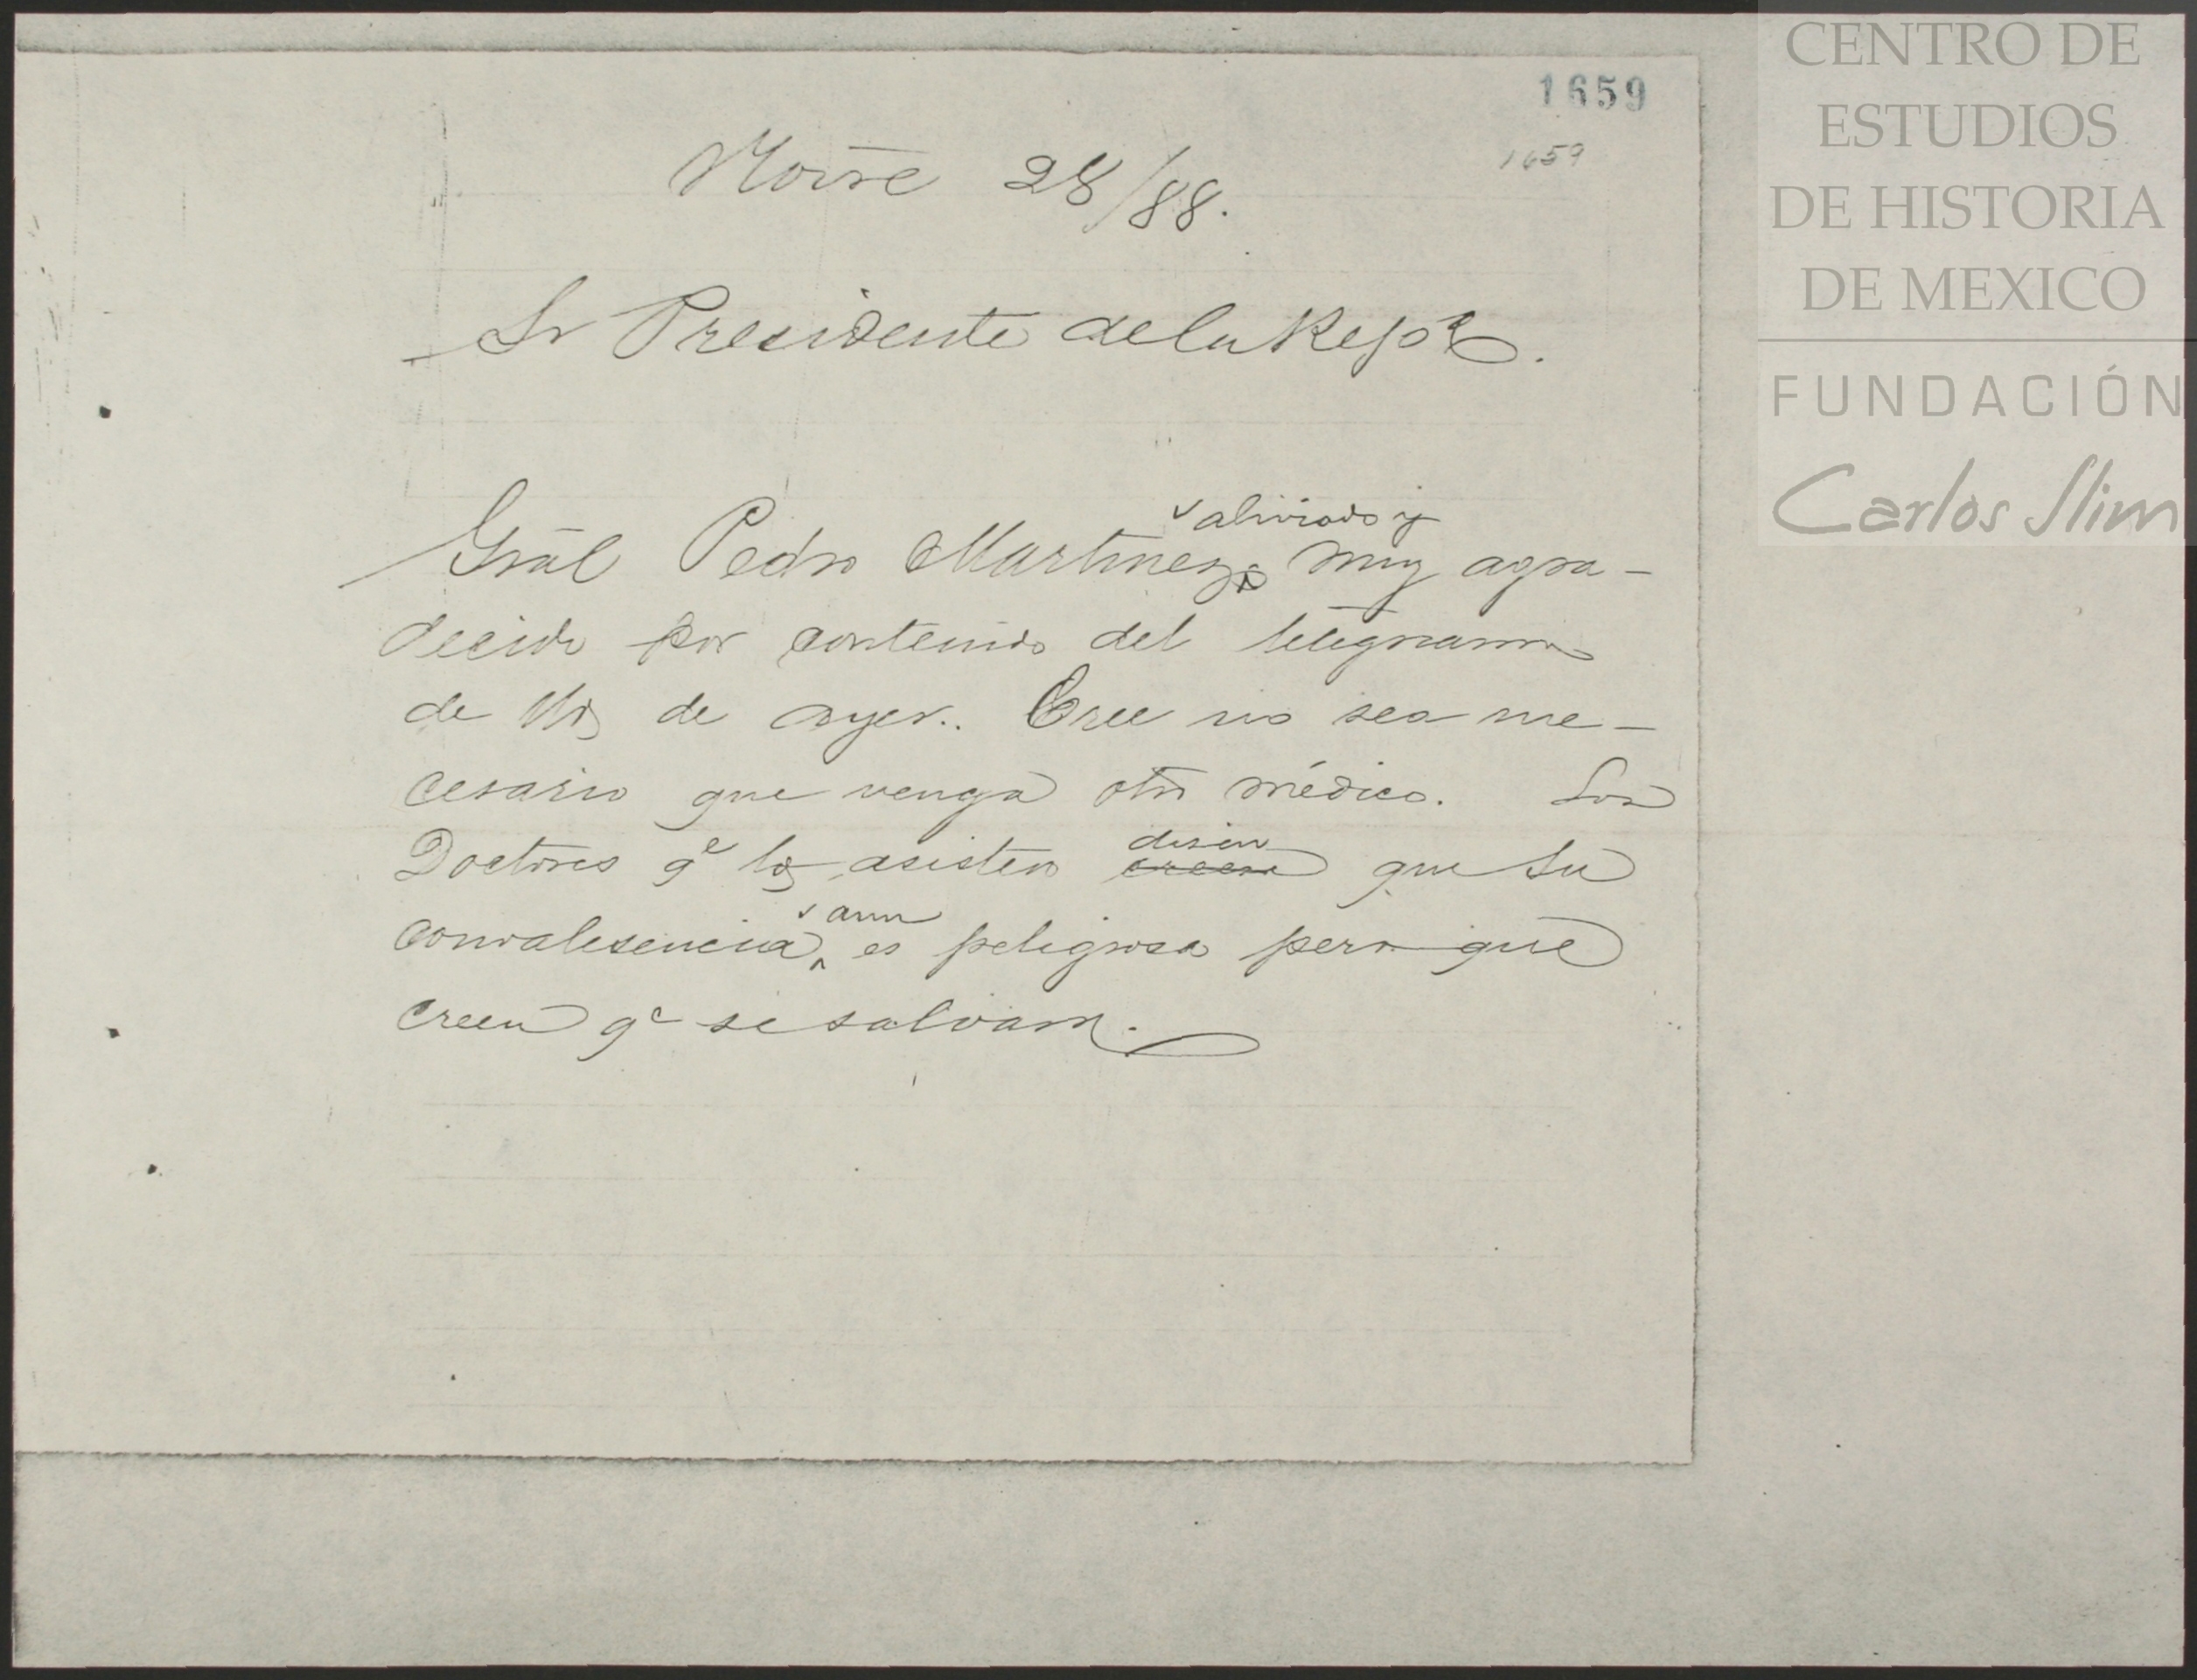 1659
1659
Novre 28/88.
Sr Presidente de la Repca.
aliviado y
Gral Pedro Martinez muy agra-
decido por contenido del telegrama
de Ud de ayer. Cree no sea ne-
cesario que venga otro médico. Los
disen
Doctores qe lo asisten creen que su
aun
convalesencia, es peligrosa pero que
creen qe se salvara.
CENTRO DE
ESTUDIOS
DE HISTORIA
DE MEXICO
FUNDACIÓN
Carlos Slim